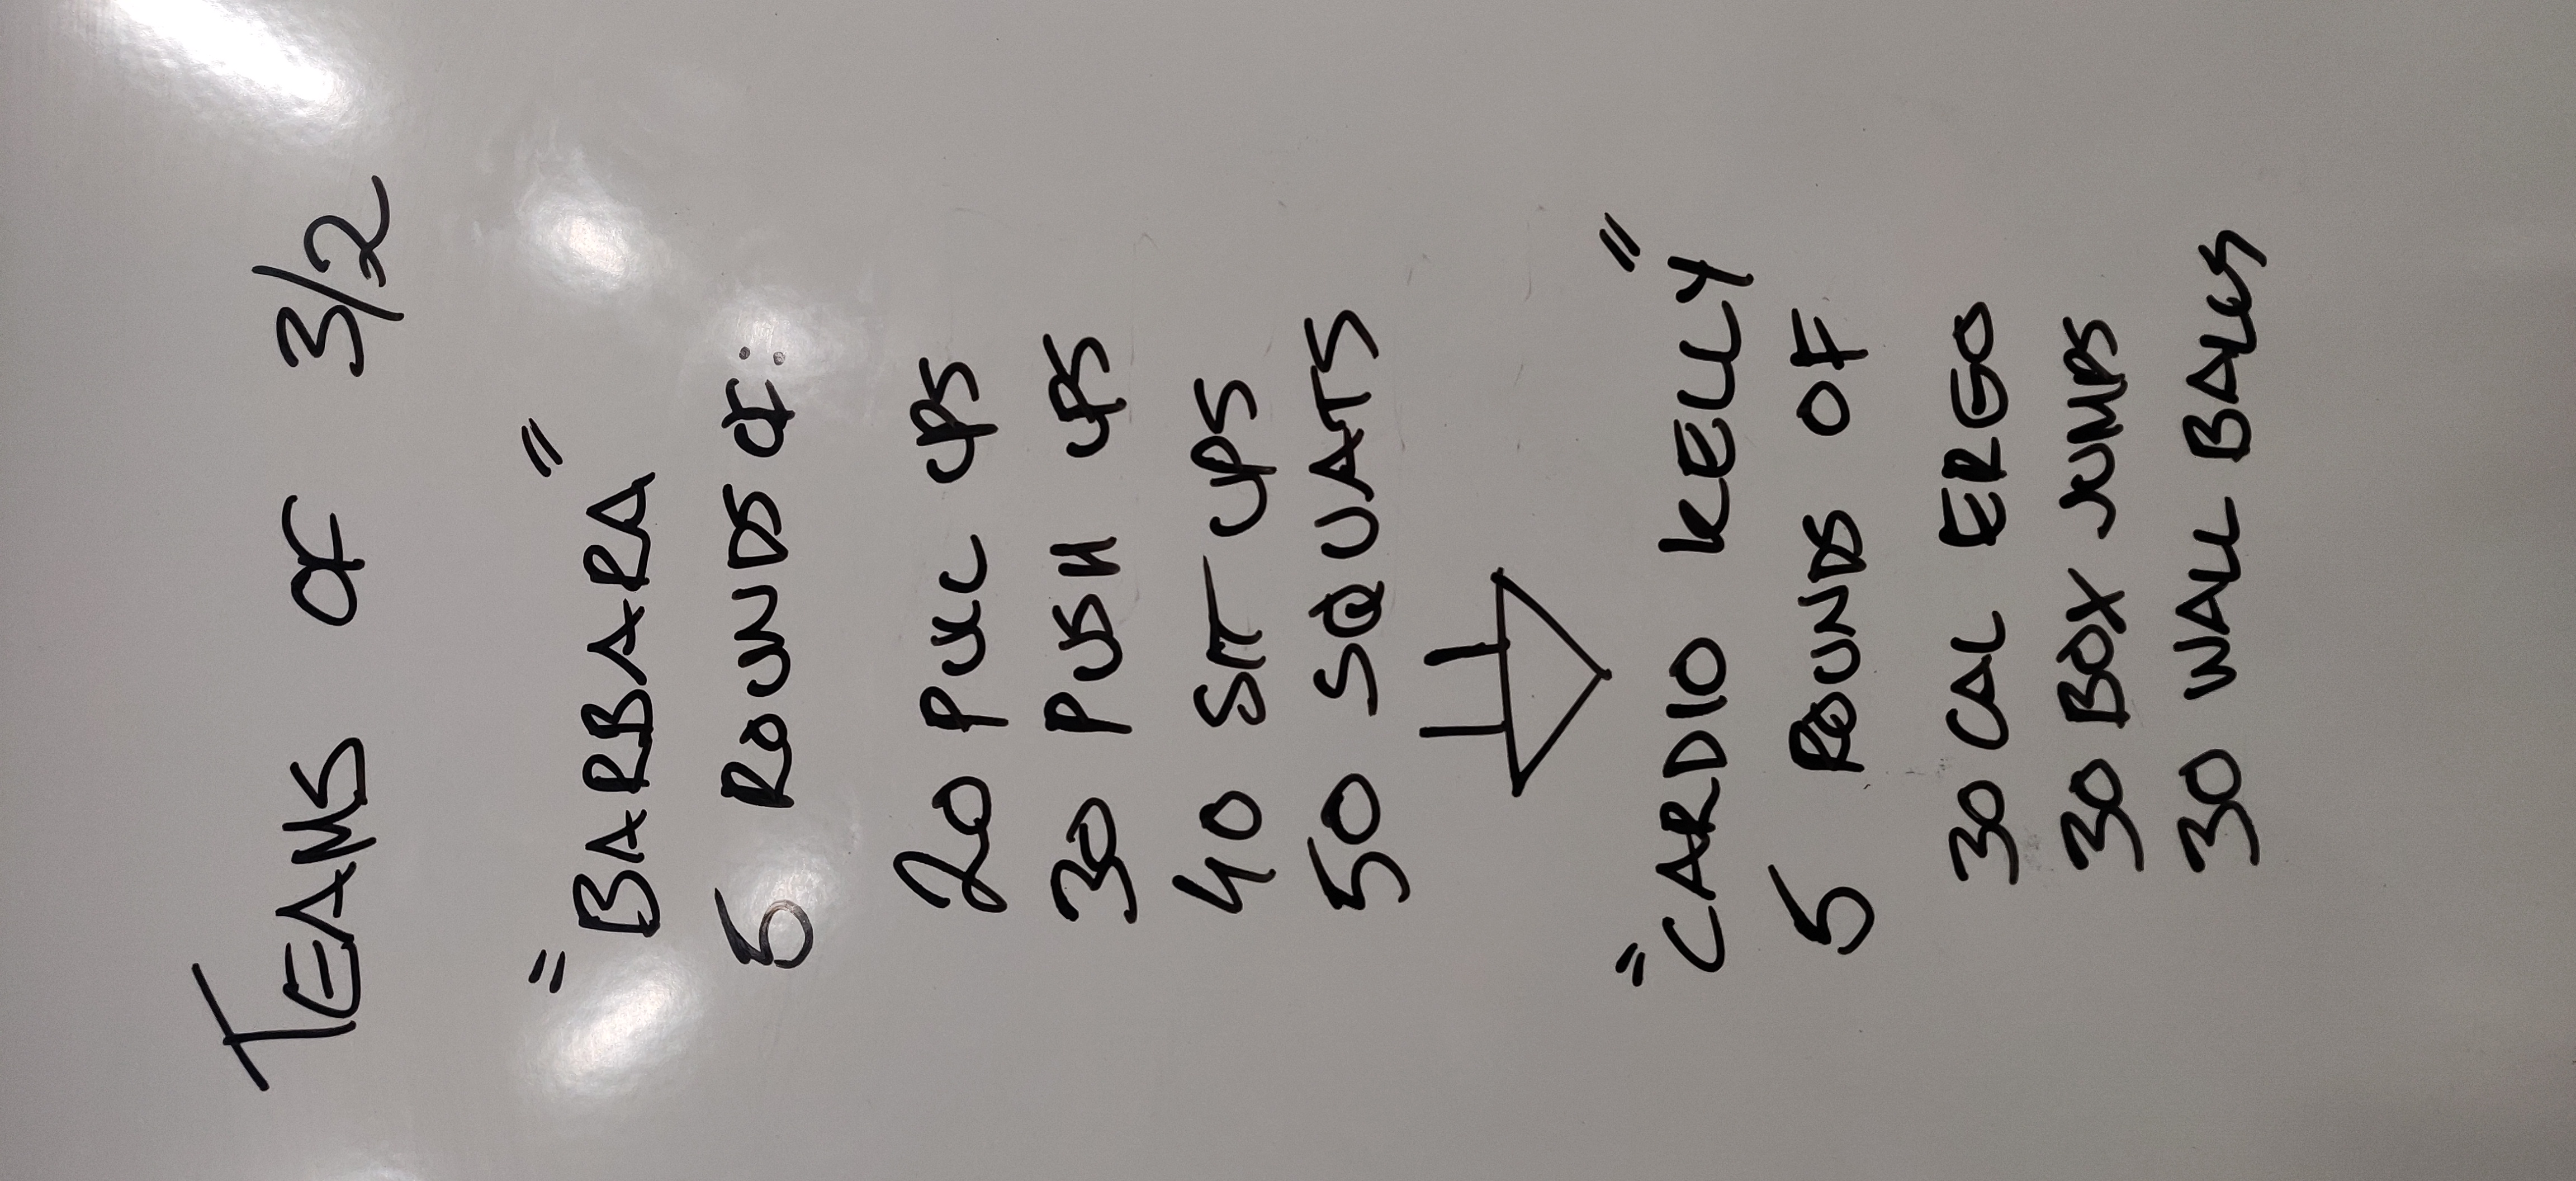 TEAMS OF 3/2
"BARBARA"
5 ROUNDS OF:
20 PULL UPS
30 PUSH UPS
40 SIT UPS
50 SQUATS
"CARDIO KELLY"
5 ROUNDS OF
30 CAL ERGO
30 BOX JUMPS
30 WALL BALLS